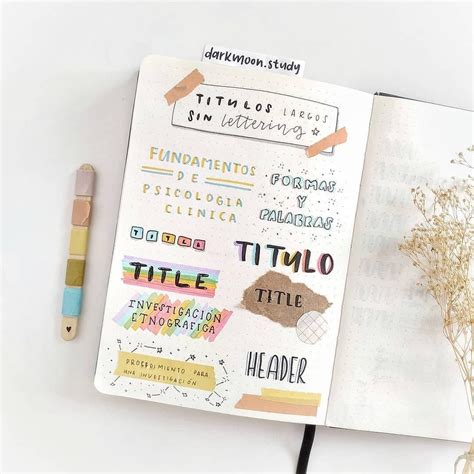 darkmoon.study
TITULOS LARGOS
SIN lettering
FUNDAMENTOS
DE
PSICOLOGIA
CLINICA
FORMAS
Y
PALABRAS
TITLE
TITULO
TITLE
TITLE
INVESTIGACIÓN
ETNOGRAFICA
HEADER
PROCEDIMIENTO PARA
UNA INVESTIGACIÓN